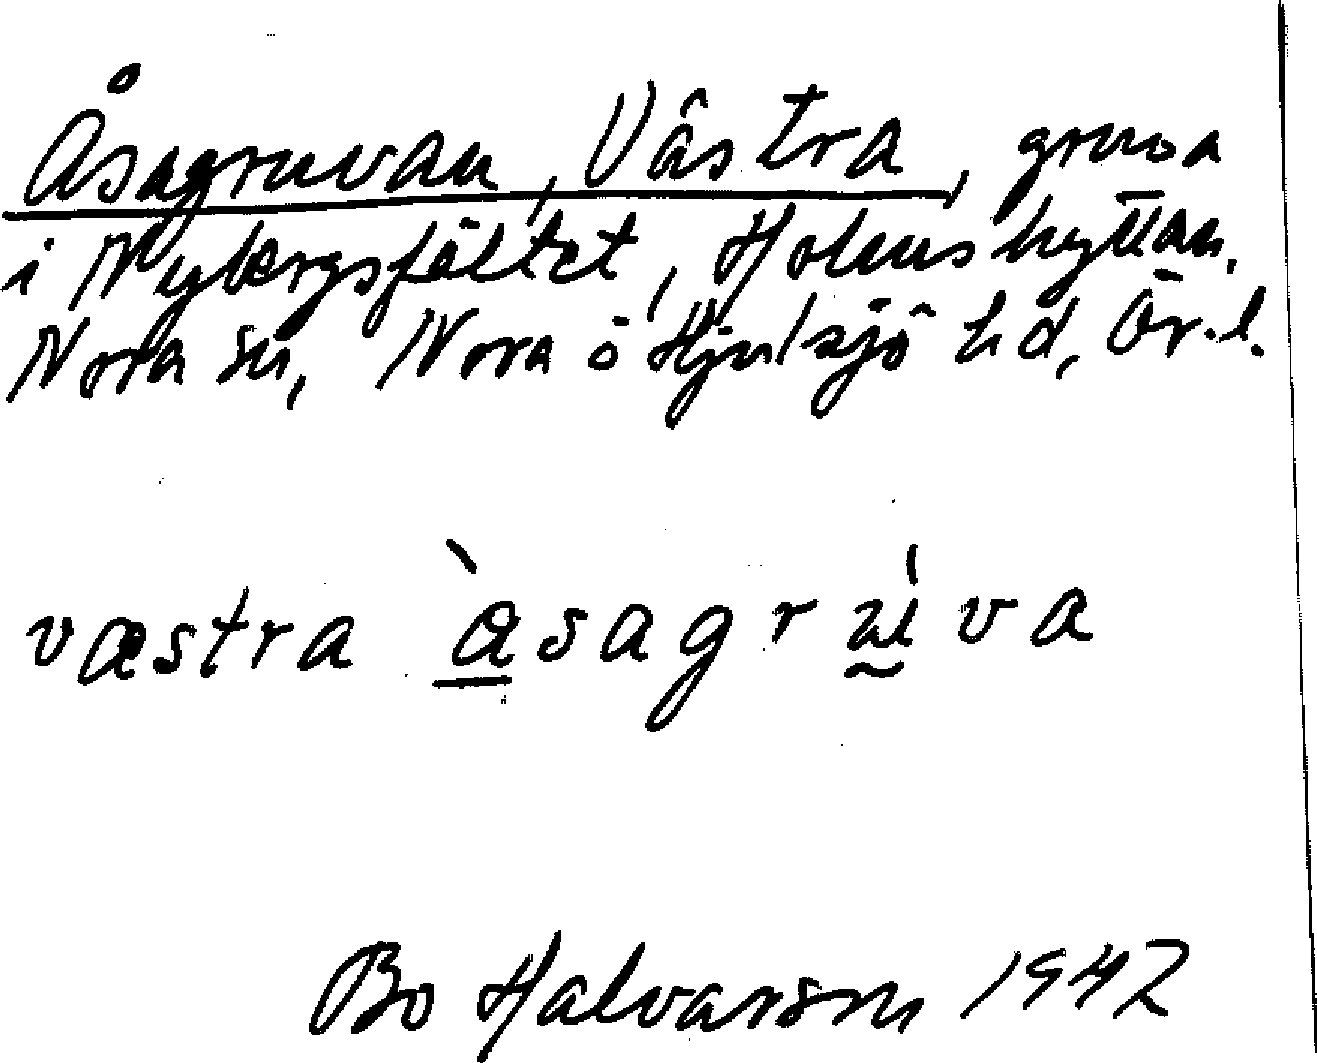 Åsagruvan, Västra, gruva
i Nybergsfältet, Holmshyttan,
Nora sn, Nora o Hjulsjö hd, Ör.l.
væstra àsagrúva
Bo Halvarson 1942